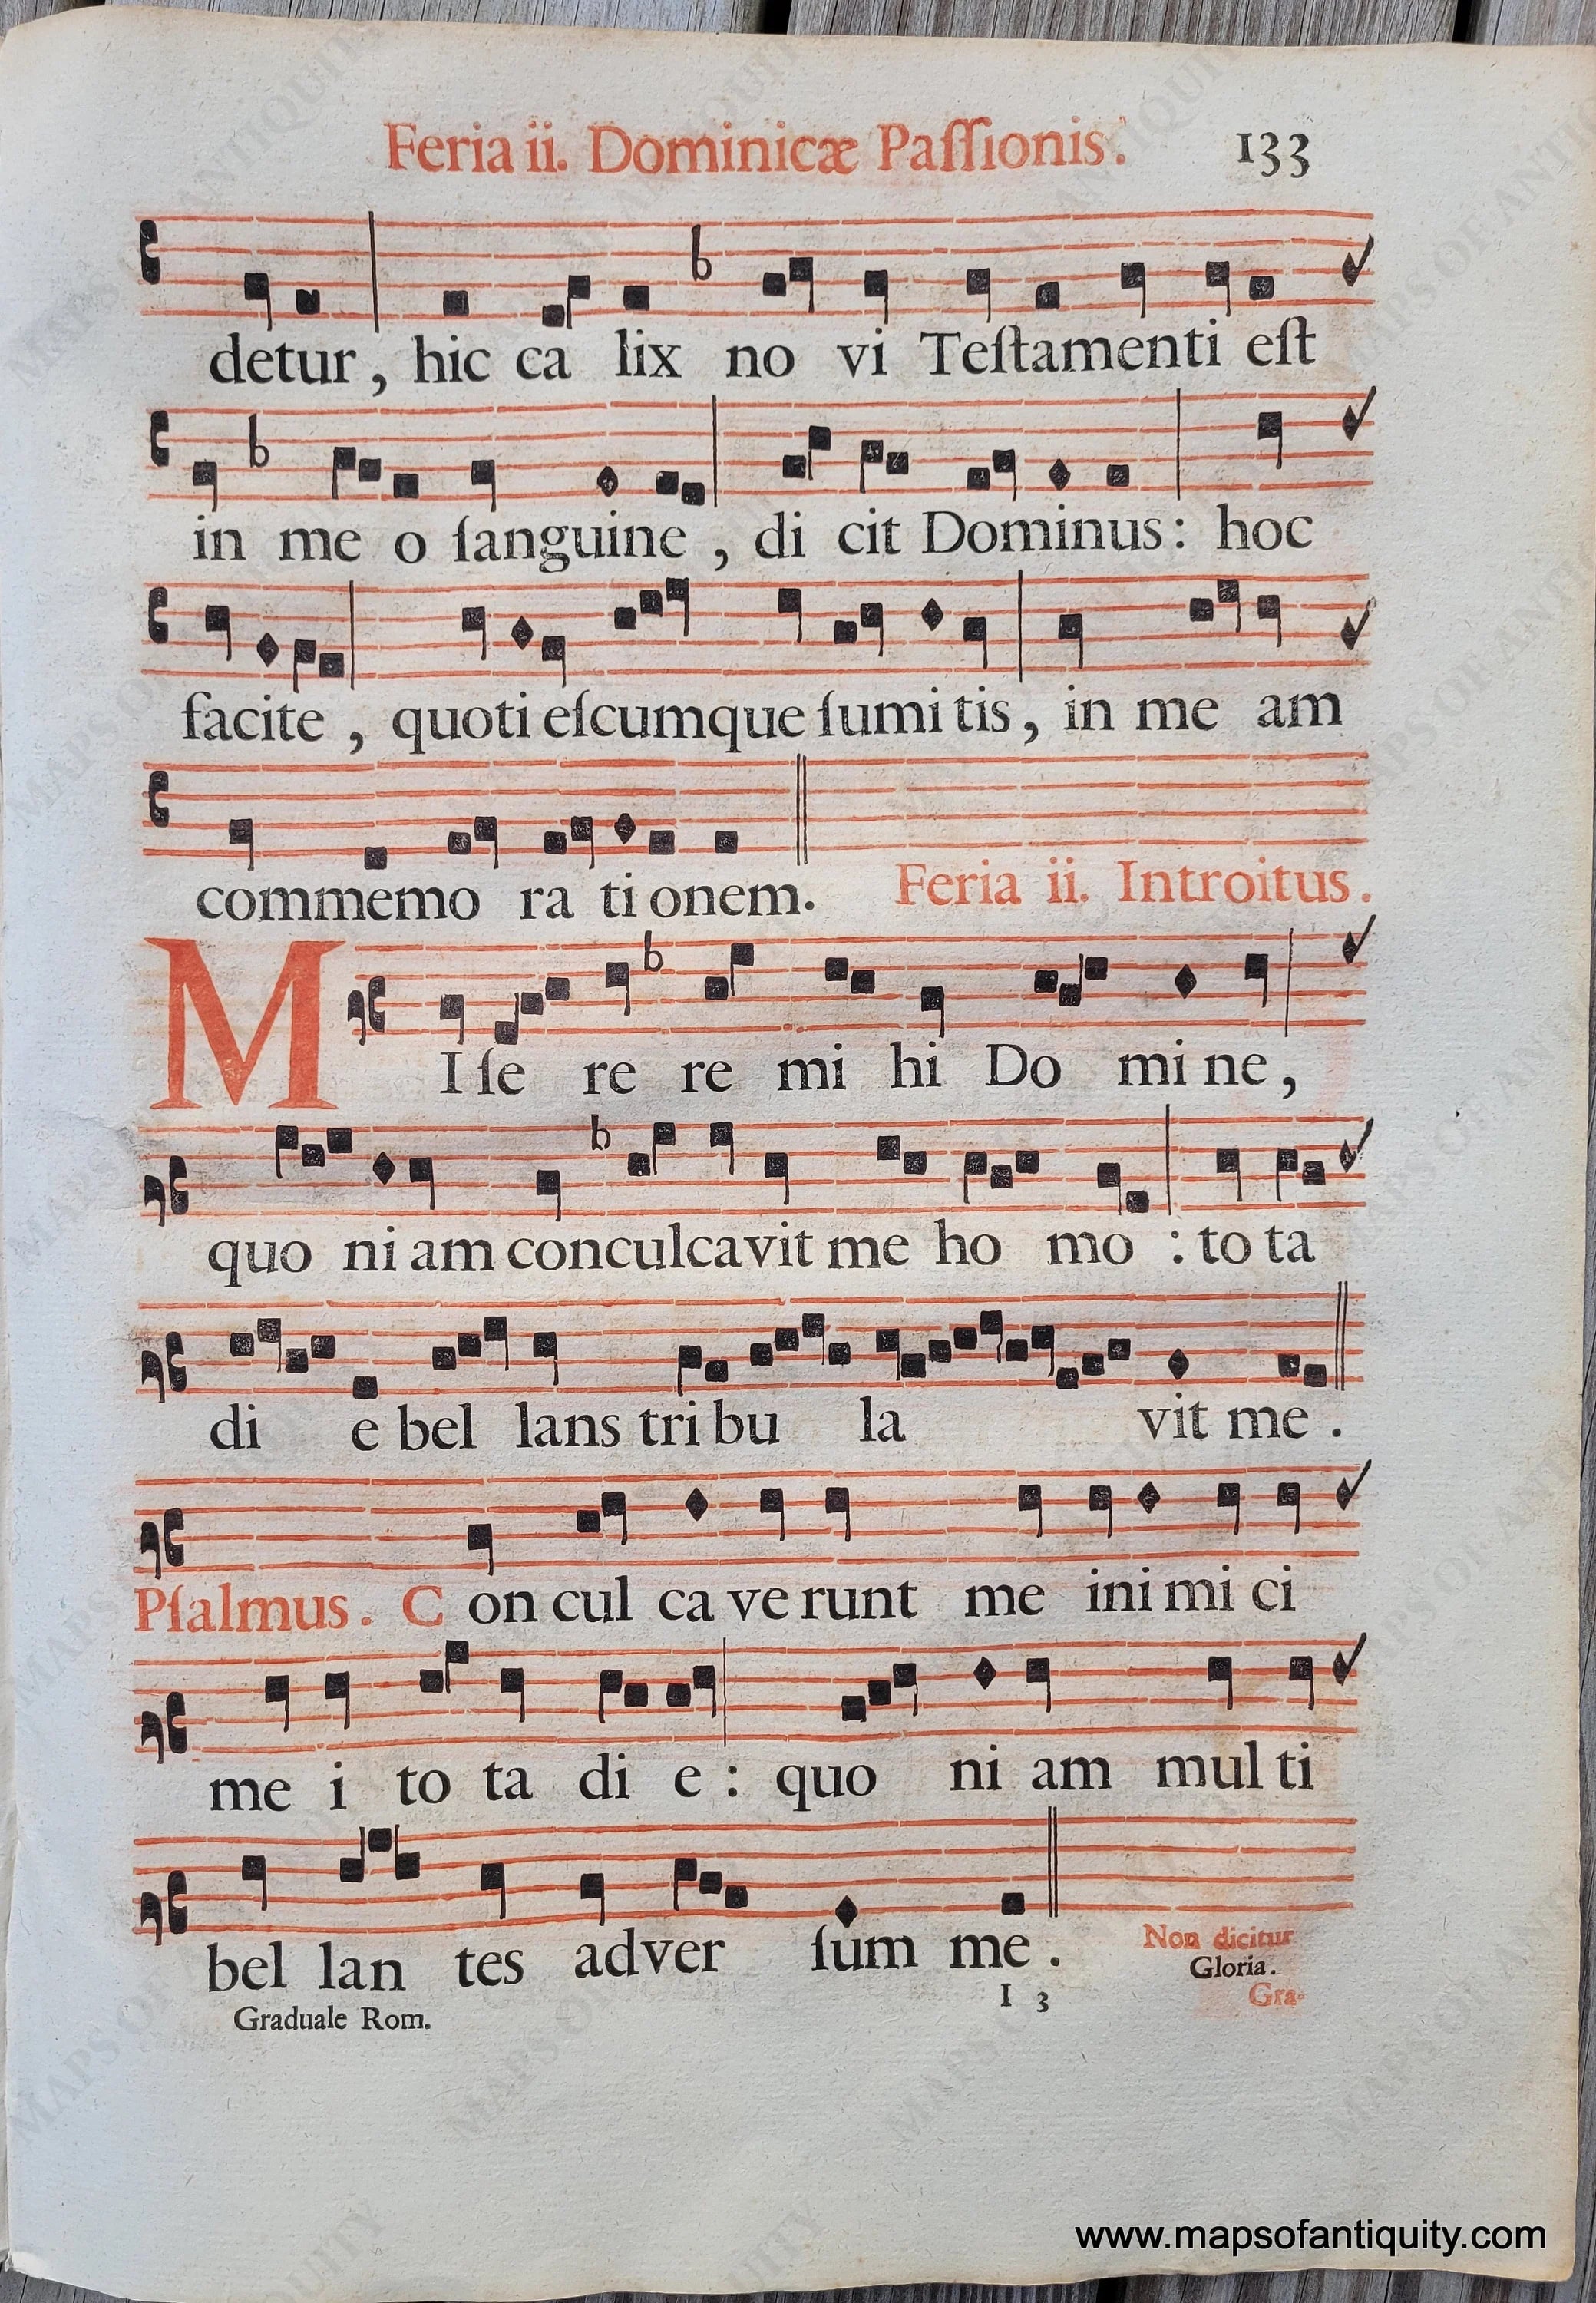 Feria ii. Dominicæ Paſſionis. 133
detur, hic ca lix no vi Teſtamenti eſt
in me o ſanguine, di cit Dominus: hoc
facite, quoti eſcumque ſumi tis, in me am
commemo ra ti onem. Feria ii. Introitus.
MI ſe re re mi hi Do mi ne,
quo ni am conculcavit me ho mo : to ta
di e bel lans tri bu la vit me.
Pſalmus. C on cul ca ve runt me ini mi ci
me i to ta di e : quo ni am mul ti
bel lan tes adver ſum me. Non dicitur
Gloria.
Graduale Rom. I 3 Gra-
www.mapsofantiquity.com
MAPS OF ANTIQUITY